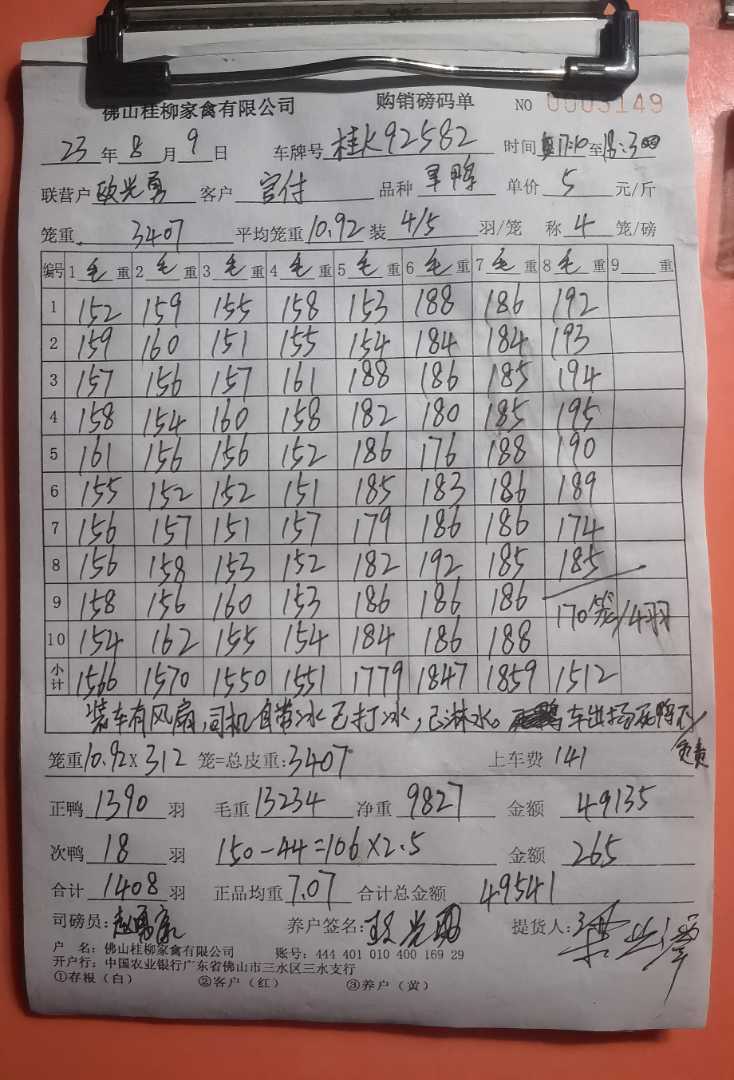 佛山桂柳家禽有限公司 购销磅码单 NO 0003149
23 年 8 月 9 日 车牌号 桂K92582 时间 17:10 至
联营户 欧兴勇 客户 官付 品种 单价 5 元/斤
笼重 3407 平均笼重 10.92 装 4/5 羽/笼 称 4 笼/磅
编号 1 毛 重 2 毛 重 3 毛 重 4 毛 重 5 毛 重 6 毛 重 7 毛 重 8 毛 重 9 重
1 152 159 155 158 153 188 186 192
2 159 160 151 155 154 184 184 193
3 157 156 157 161 188 186 185 194
4 158 154 160 158 182 180 185 195
5 161 156 156 152 186 176 188 190
6 155 152 152 151 185 183 186 189
7 156 157 151 157 179 186 186 174
8 156 158 153 152 182 192 185 185
9 158 156 160 153 186 186 186 170笼/4羽
10 154 162 155 154 184 186 188
小计 1566 1570 1550 1551 1779 1847 1859 1512
装车有风扇,司机自带冰已打冰,已淋水。车出场死鸭不负责
笼重 10.92 X 312 笼=总皮重: 3407 上车费 141
正鸭 1390 羽 毛重 13234 净重 9827 金额 49135
次鸭 18 羽 150-44=106×2.5 金额 265
合计 1408 羽 正品均重 7.07 合计总金额 49541
司磅员: 养户签名: 提货人:
户 名: 佛山桂柳家禽有限公司 账号: 444 401 010 400 169 29
开户行: 中国农业银行广东省佛山市三水区三水支行
①存根(白) ②客户(红) ③养户(黄)